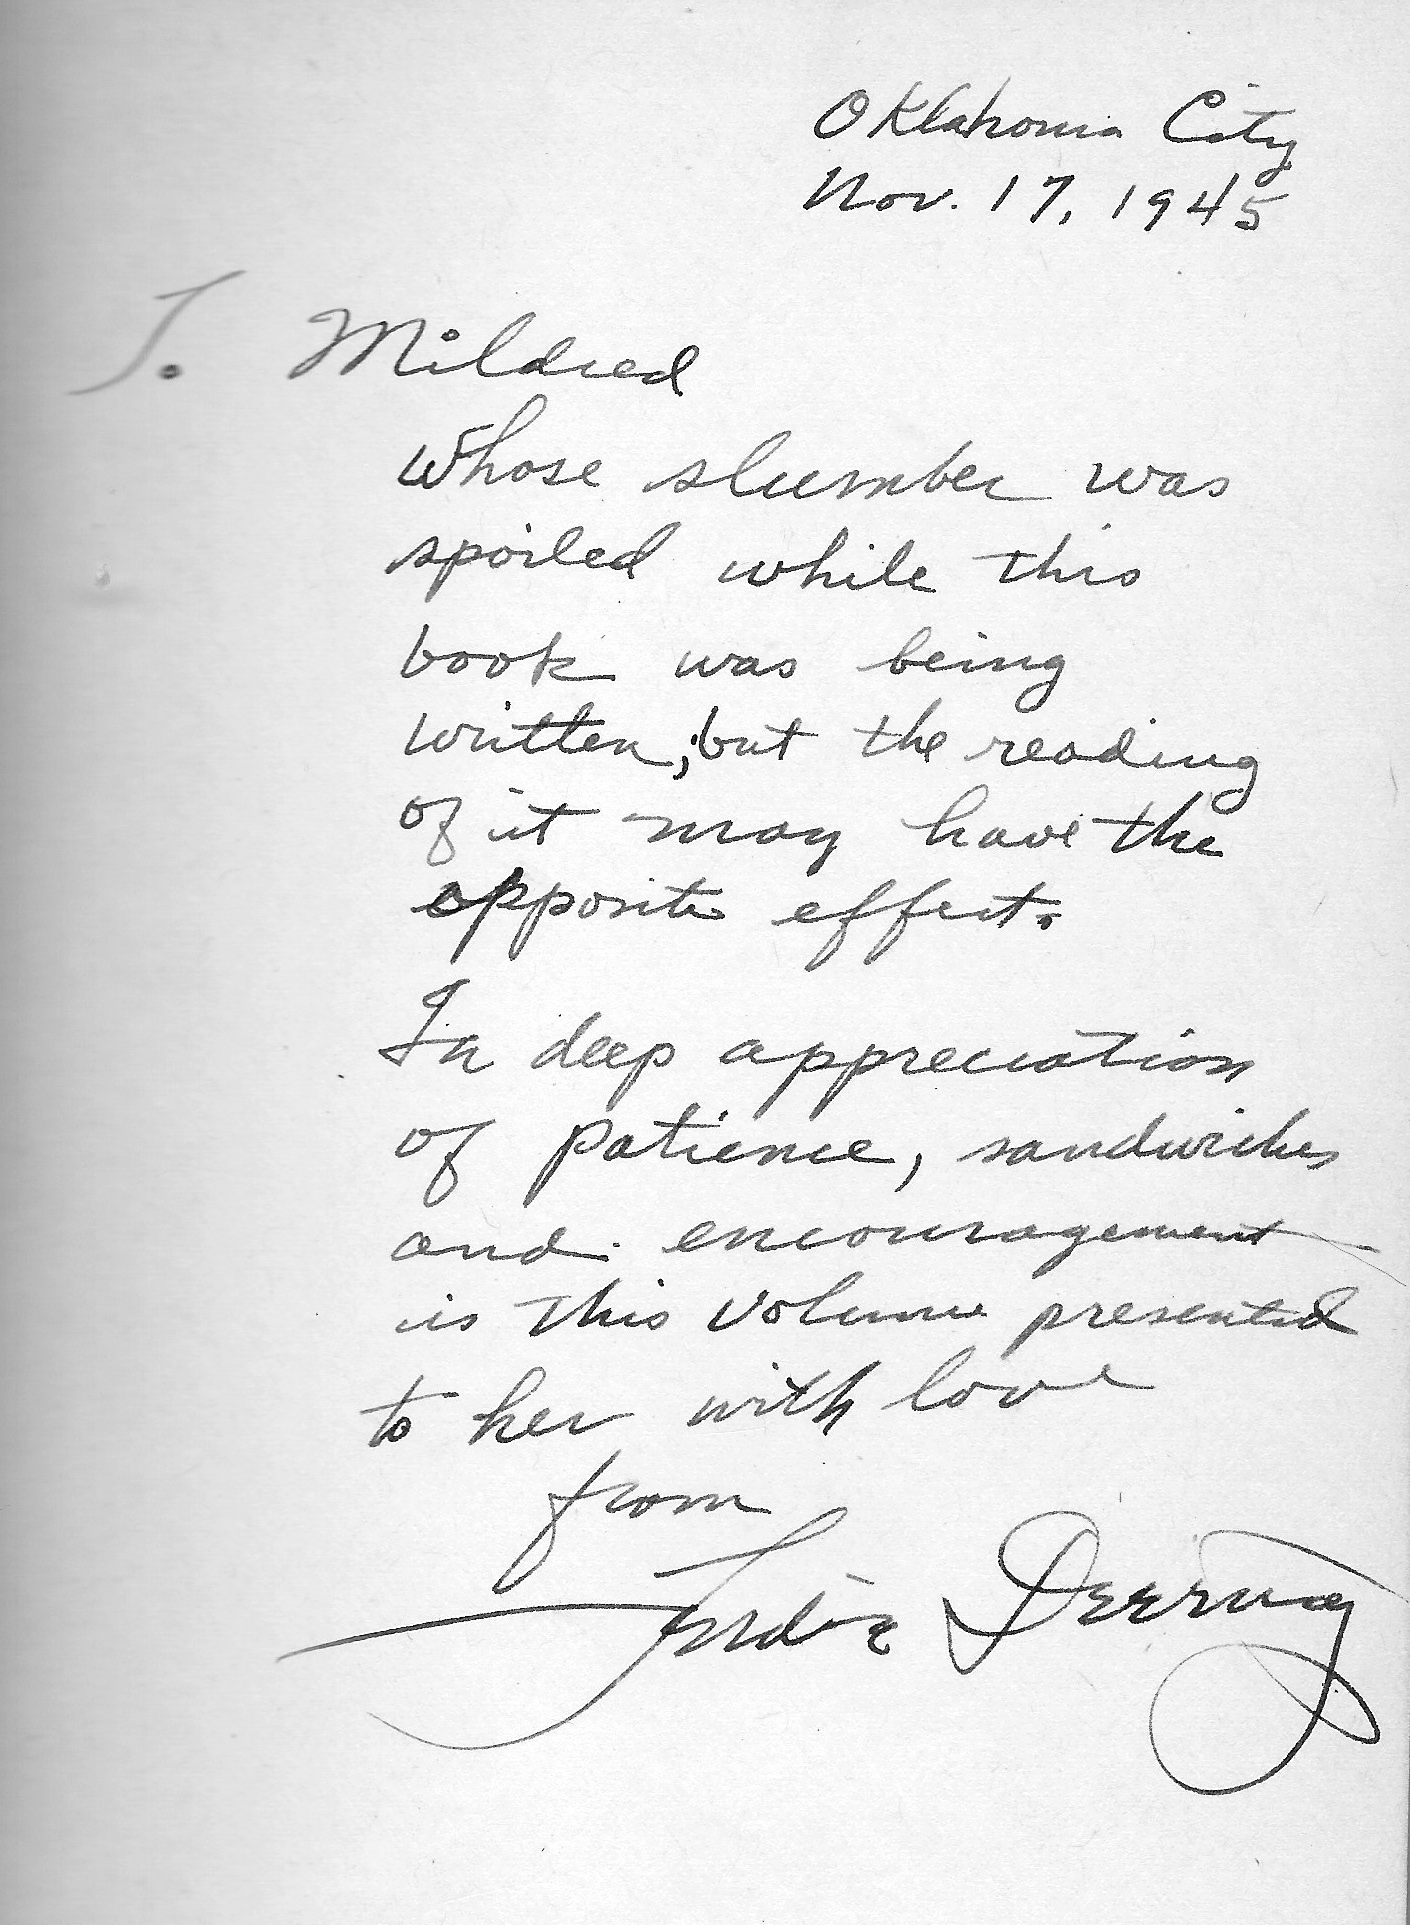 Oklahoma City
Nov. 17, 1945
To Mildred
whose slumber was
spoiled while this
book was being
written, but the reading
of it may have the
opposite effect.
In deep appreciation
of patience, sandwiches
and encouragement
is this volume presented
to her with love
from